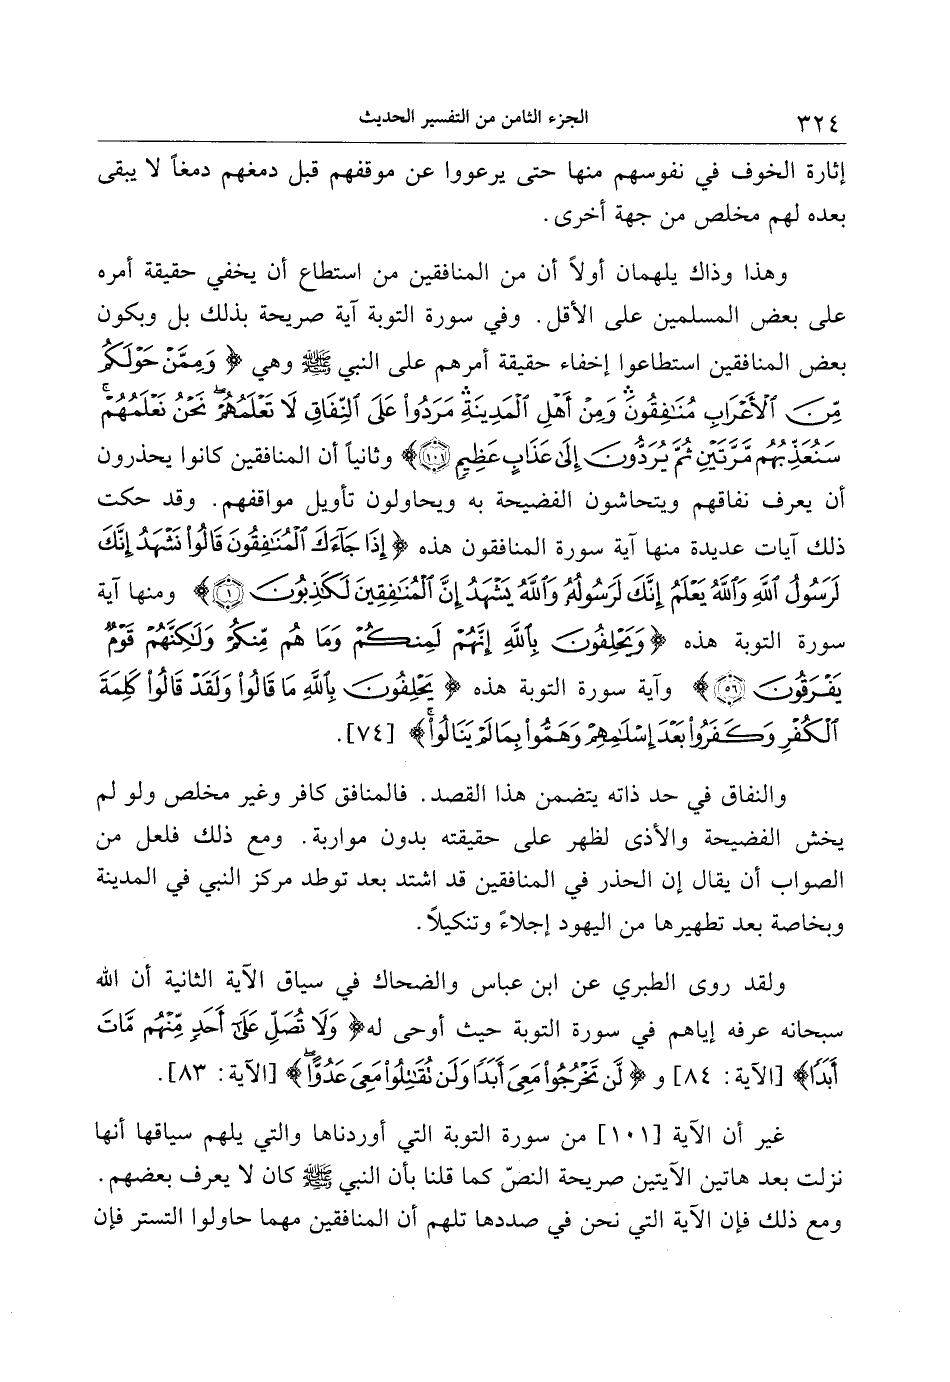 ٣٢٤ الجزء الثامن من التفسير الحديث
إثارة الخوف في نفوسهم منها حتى يرعووا عن موقفهم قبل دمغهم دمغاً لا يبقى
بعده لهم مخلص من جهة أخرى.
وهذا وذاك يلهمان أولاً أن من المنافقين من استطاع أن يخفي حقيقة أمره
على بعض المسلمين على الأقل. وفي سورة التوبة آية صريحة بذلك بل وبكون
بعض المنافقين استطاعوا إخفاء حقيقة أمرهم على النبي ﷺ وهي ﴿ وَمِمَّنْ حَوْلَكُم
مِّنَ ٱلْأَعْرَابِ مُنَٰفِقُونَۖ وَمِنْ أَهْلِ ٱلْمَدِينَةِۖ مَرَدُوا۟ عَلَى ٱلنِّفَاقِ لَا تَعْلَمُهُمْۖ نَحْنُ نَعْلَمُهُمْۚ
سَنُعَذِّبُهُم مَّرَّتَيْنِ ثُمَّ يُرَدُّونَ إِلَىٰ عَذَابٍ عَظِيمٍ ١٠١﴾ وثانياً أن المنافقين كانوا يحذرون
أن يعرف نفاقهم ويتحاشون الفضيحة به ويحاولون تأويل مواقفهم. وقد حكت
ذلك آيات عديدة منها آية سورة المنافقون هذه ﴿ إِذَا جَآءَكَ ٱلْمُنَٰفِقُونَ قَالُوا۟ نَشْهَدُ إِنَّكَ
لَرَسُولُ ٱللَّهِ وَٱللَّهُ يَعْلَمُ إِنَّكَ لَرَسُولُهُۥ وَٱللَّهُ يَشْهَدُ إِنَّ ٱلْمُنَٰفِقِينَ لَكَٰذِبُونَ ١﴾ ومنها آية
سورة التوبة هذه ﴿ وَيَحْلِفُونَ بِٱللَّهِ إِنَّهُمْ لَمِنكُمْ وَمَا هُم مِّنكُمْ وَلَٰكِنَّهُمْ قَوْمٌ
يَفْرَقُونَ ٥٦﴾ وآية سورة التوبة هذه ﴿ يَحْلِفُونَ بِٱللَّهِ مَا قَالُوا۟ وَلَقَدْ قَالُوا۟ كَلِمَةَ
ٱلْكُفْرِ وَكَفَرُوا۟ بَعْدَ إِسْلَٰمِهِمْ وَهَمُّوا۟ بِمَا لَمْ يَنَالُوا۟ۚ﴾ [٧٤].
والنفاق في حد ذاته يتضمن هذا القصد. فالمنافق كافر وغير مخلص ولو لم
يخش الفضيحة والأذى لظهر على حقيقته بدون مواربة. ومع ذلك فلعل من
الصواب أن يقال إن الحذر في المنافقين قد اشتد بعد توطد مركز النبي في المدينة
وبخاصة بعد تطهيرها من اليهود إجلاءً وتنكيلاً.
ولقد روى الطبري عن ابن عباس والضحاك في سياق الآية الثانية أن الله
سبحانه عرفه إياهم في سورة التوبة حيث أوحى له﴿ وَلَا تُصَلِّ عَلَىٰٓ أَحَدٍ مِّنْهُم مَّاتَ
أَبَدًا﴾ [الآية: ٨٤] و ﴿ لَّن تَخْرُجُوا۟ مَعِىَ أَبَدًا وَلَن تُقَٰتِلُوا۟ مَعِىَ عَدُوًّاۖ﴾ [الآية: ٨٣].
غير أن الآية [١٠١] من سورة التوبة التي أوردناها والتي يلهم سياقها أنها
نزلت بعد هاتين الآيتين صريحة النصّ كما قلنا بأن النبي ﷺ كان لا يعرف بعضهم.
ومع ذلك فإن الآية التي نحن في صددها تلهم أن المنافقين مهما حاولوا التستر فإن